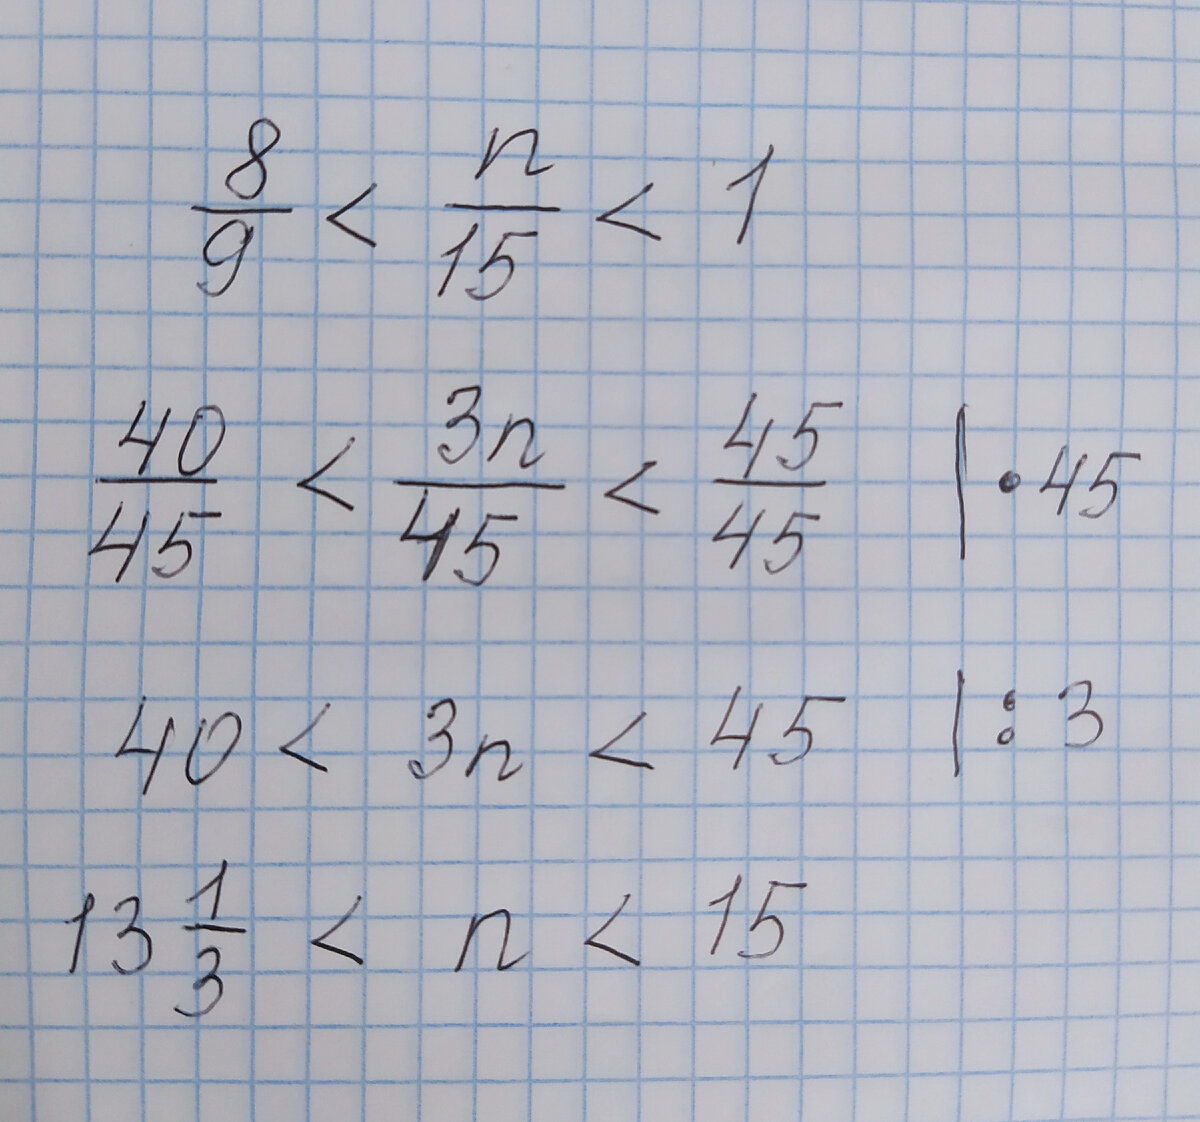 8/9 < n/15 < 1
40/45 < 3n/45 < 45/45 | • 45
40 < 3n < 45 | : 3
13 1/3 < n < 15